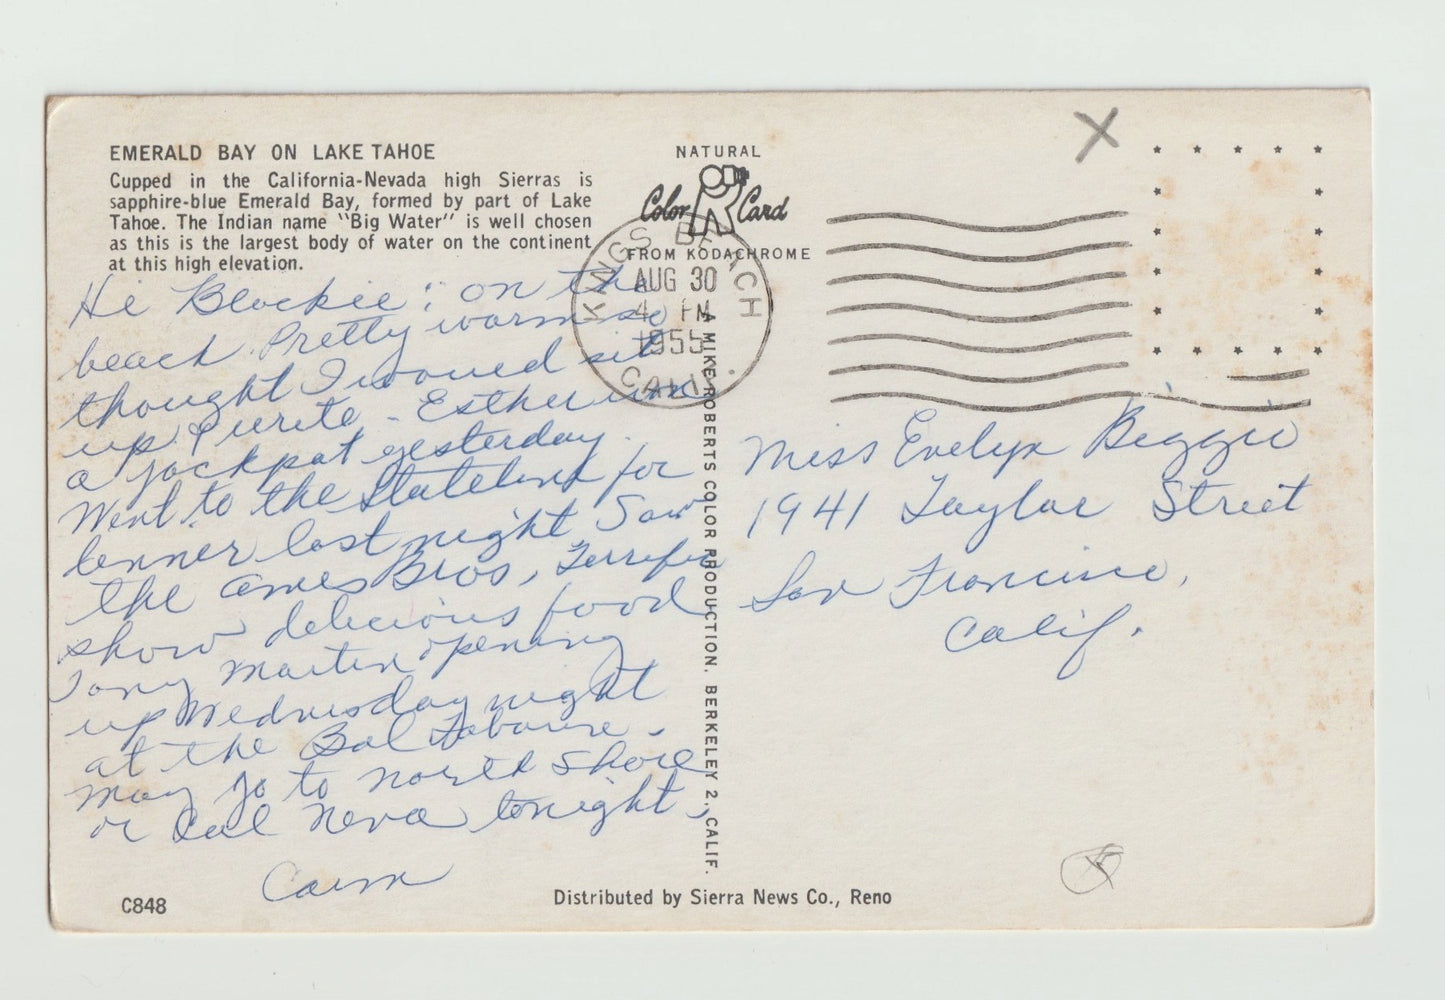 EMERALD BAY ON LAKE TAHOE
Cupped in the California-Nevada high Sierras is
sapphire-blue Emerald Bay, formed by part of Lake
Tahoe. The Indian name "Big Water" is well chosen
as this is the largest body of water on the continent
at this high elevation.
Hi Blackie: on the
beach. Pretty warm so
thought I would sit
up & write - Esther won
a jackpot yesterday.
Went to the Stateline for
denner last night Saw
the Ames Bros, Terrific
show delicious food
Tony Martin opening
up Wednesday night
at the Bal Tabarin.
May go to North Shore
or Cal Neva tonight,
C848
NATURAL
Color Card
FROM KODACHROME
KINGS BEACH
AUG 30
4 PM
1955
CALIF.
A MIKE ROBERTS COLOR PRODUCTION. BERKELEY 2, CALIF.
Distributed by Sierra News Co., Reno
X
Miss Evelyn
1941 Taylor Street
San Francisco,
Calif.